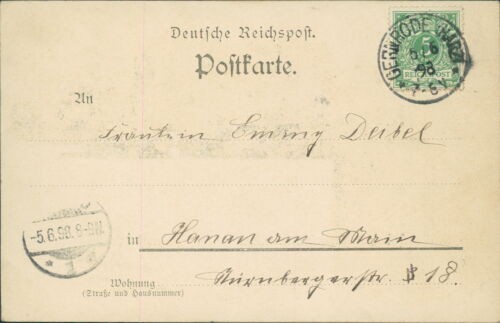 Deutsche Reichspost.
Postkarte.
GERNRODE (HARZ)
5 6
98
* 7-8 V.
5
REICHSPOST
An
Fräulein Emmy Deibel
-5.6.98. 8-9N.
* 1 *
in Hanau am Main
Wohnung
(Straße und Hausnummer)
Nürnbergerstr. 18.